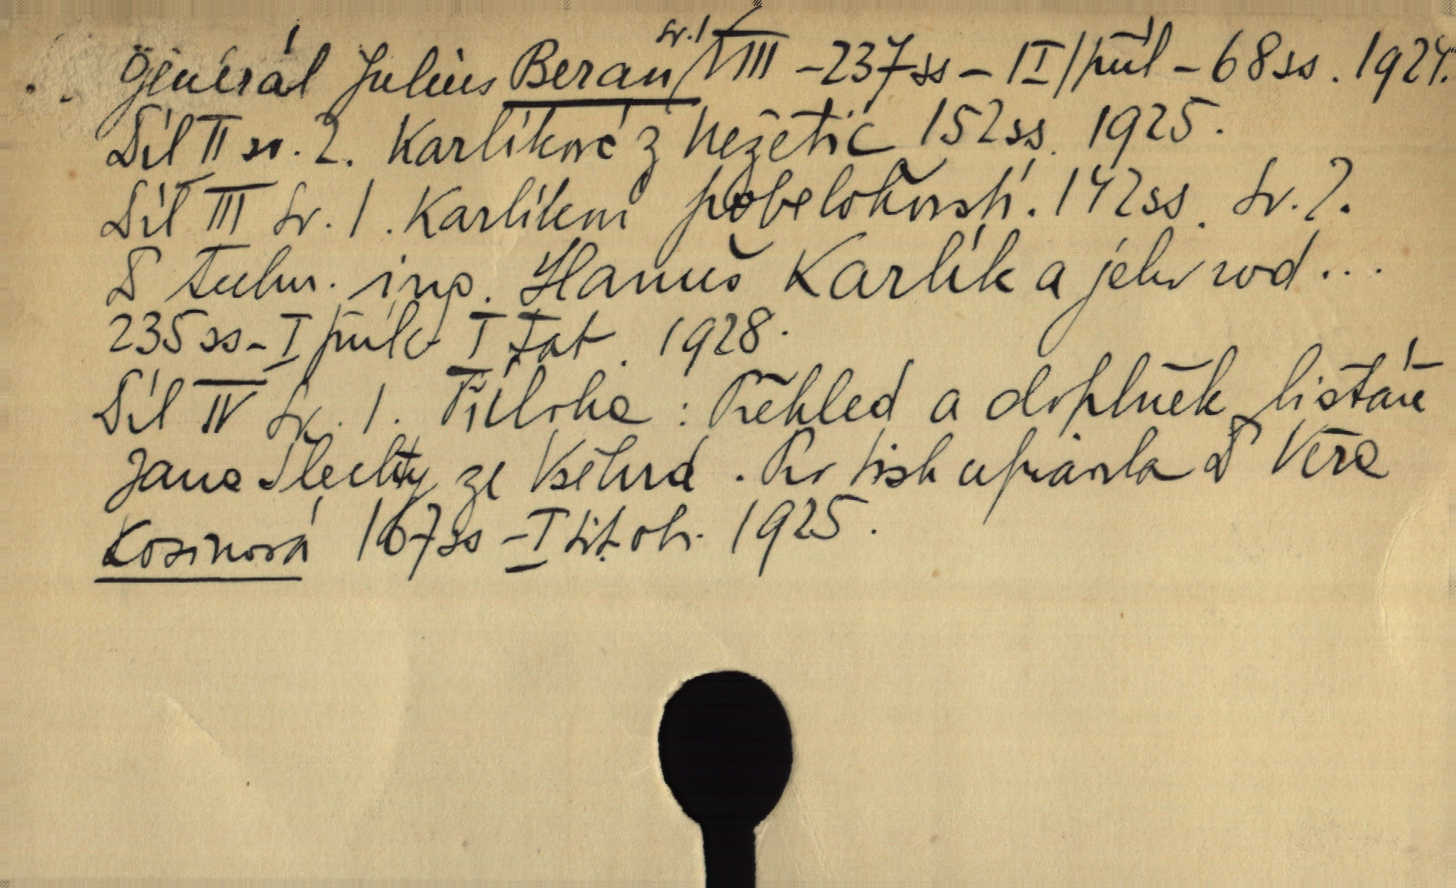 generál Julius Beran sv.1/VIII - 237ss - II/půl - 68ss. 1924.
Díl II sv. 2. Karlíkové z Nežetic 152ss. 1925.
Díl III sv. 1. Karlíkové pobělohorští. 142ss. Sv. 2.
Dr techn. ing. Hanuš Karlík a jeho rod...
235ss - I půlka I tab. 1928.
Díl IV sv. 1. Příloha: Přehled a doplněk listáře
Jana Šlechty ze Všehrd. Pro tisk upravila Dr Věra
Kosinová 167ss - I tit. obr. 1925.